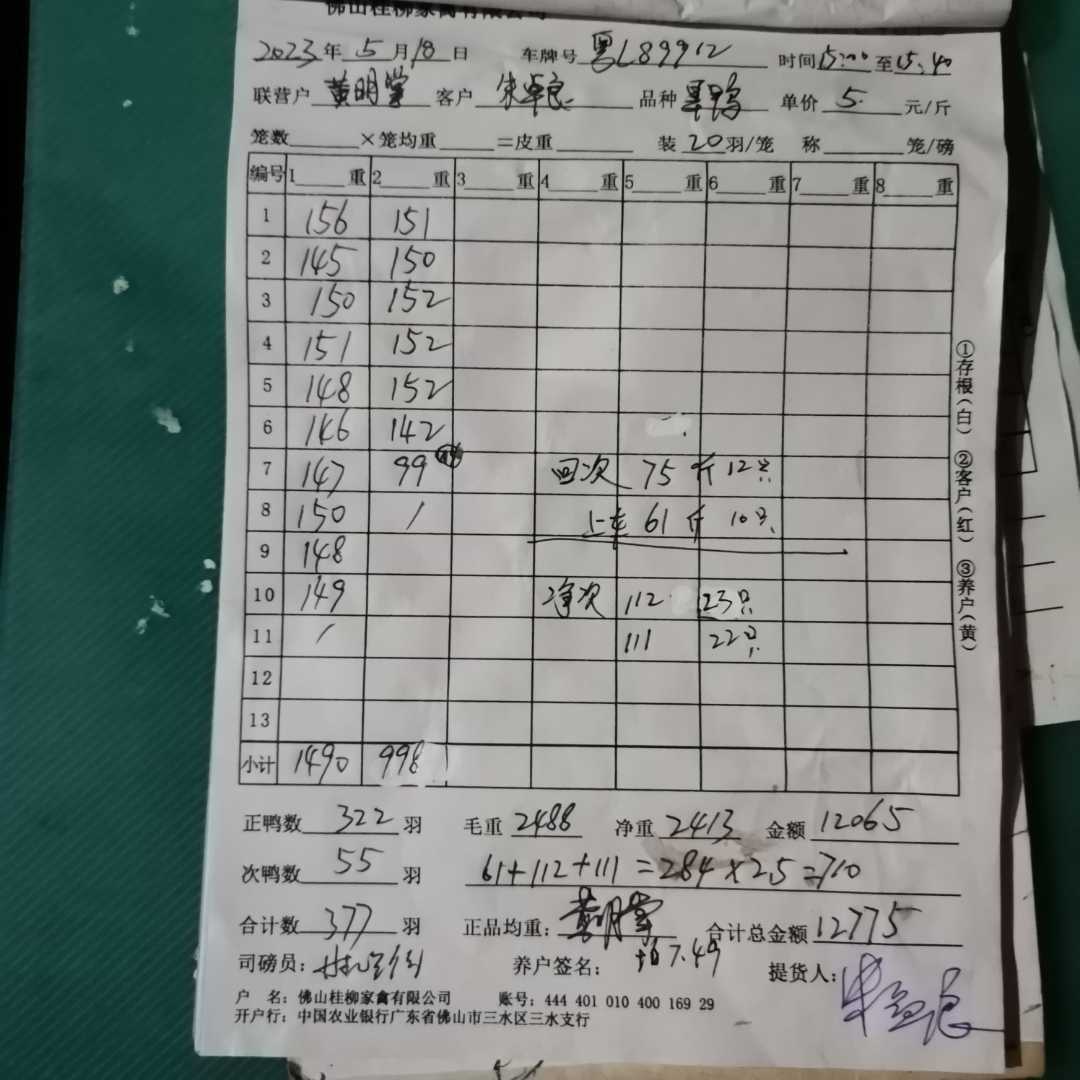 佛山桂柳家禽有限公司
2023年 5月18日 车牌号 粤L89912 时间15:00至15:40
联营户 黄明堂 客户 朱卓良 品种 旱鸭 单价 5. 元/斤
笼数 ×笼均重 =皮重 装 20羽/笼 称 笼/磅
编号 1 重 2 重 3 重 4 重 5 重 6 重 7 重 8 重
1 156 151
2 145 150
3 150 152
4 151 152
5 148 152
6 146 142
7 147 99 回次 75斤 12只
8 150 / 上车 61斤 10只
9 148
10 149 净次 112 23只
11 / 111 22只
12
13
小计 1490 998
正鸭数 322 羽 毛重 2488 净重 2413 金额 12065
次鸭数 55 羽 61+112+111=284×2.5=710
合计数 377 羽 正品均重: 黄明堂 合计总金额 12775
司磅员: 养户签名: 均7.49 提货人: 朱卓良
户 名: 佛山桂柳家禽有限公司 账号: 444 401 010 400 169 29
开户行: 中国农业银行广东省佛山市三水区三水支行
①存根(白) ②客户(红) ③养户(黄)